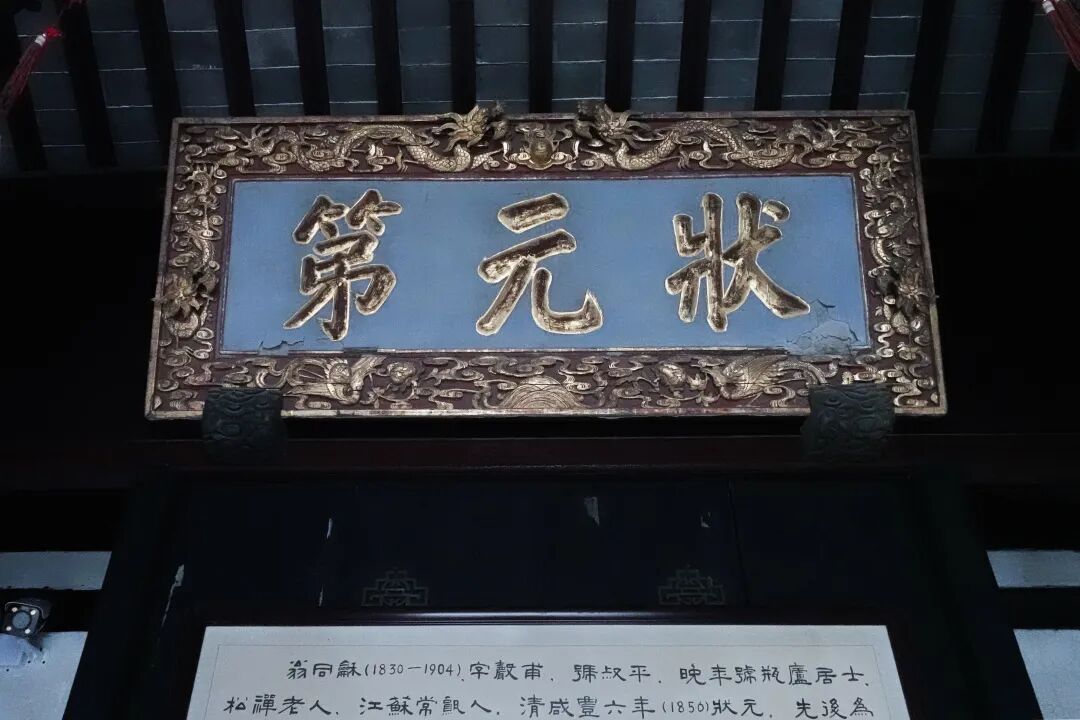 狀元第
翁同龢(1830—1904)字聲甫．號叔平．晚年號瓶廬居士．
松禪老人．江蘇常熟人．清咸豐六年(1850)狀元．先後為